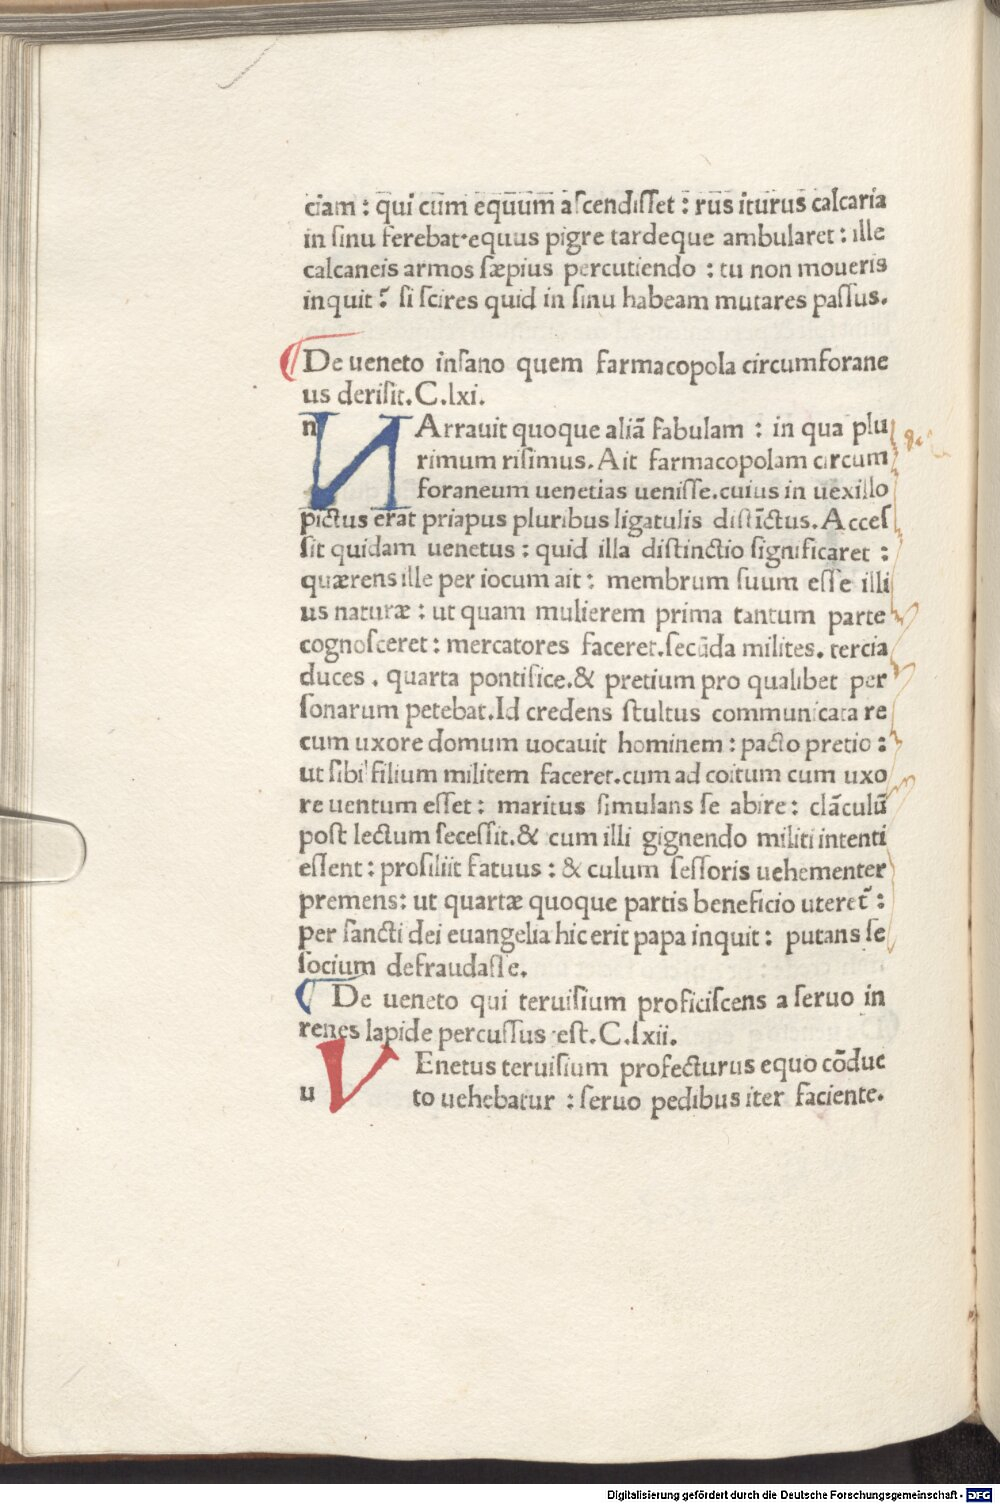 ciam : qui cum equum aſcendiſſet : rus iturus calcaria
in ſinu ferebat·equus pigre tardeque ambularet : ille
calcaneis armos ſæpius percutiendo : tu non moueris
inquit ? ſi ſcires quid in ſinu habeam mutares paſſus.
¶ De ueneto inſano quem farmacopola circumforane
us deriſit. C. lxi.
n N Arrauit quoque aliā fabulam : in qua plu
rimum riſimus. Ait farmacopolam circum
foraneum uenetias ueniſſe. cuius in uexillo
pictus erat priapus pluribus ligatulis diſtīctus. Acceſ
ſit quidam uenetus : quid illa diſtinctio ſignificaret :
quærens ille per iocum ait : membrum ſuum eſſe illi
us naturæ : ut quam mulierem prima tantum parte
cognoſceret : mercatores faceret. ſecūda milites. tercia
duces . quarta pontifice. & pretium pro qualibet per
ſonarum petebat. Id credens ſtultus communicata re
cum uxore domum uocauit hominem : pacto pretio :
ut ſibi filium militem faceret. cum ad coitum cum uxo
re uentum eſſet : maritus ſimulans ſe abire : clāculū
poſt lectum ſeceſſit. & cum illi gignendo militi intenti
eſſent : proſiliit fatuus : & culum ſeſſoris uehementer
premens : ut quartæ quoque partis beneficio uteret̄ :
per ſancti dei euangelia hic erit papa inquit : putans ſe
ſocium defraudaſſe.
¶ De ueneto qui teruiſium proficiſcens a ſeruo in
renes lapide percuſſus eſt. C. lxii.
V Enetus teruiſium profecturus equo cōduc
u to uehebatur : ſeruo pedibus iter faciente.
Digitalisierung gefördert durch die Deutsche Forschungsgemeinschaft - DFG